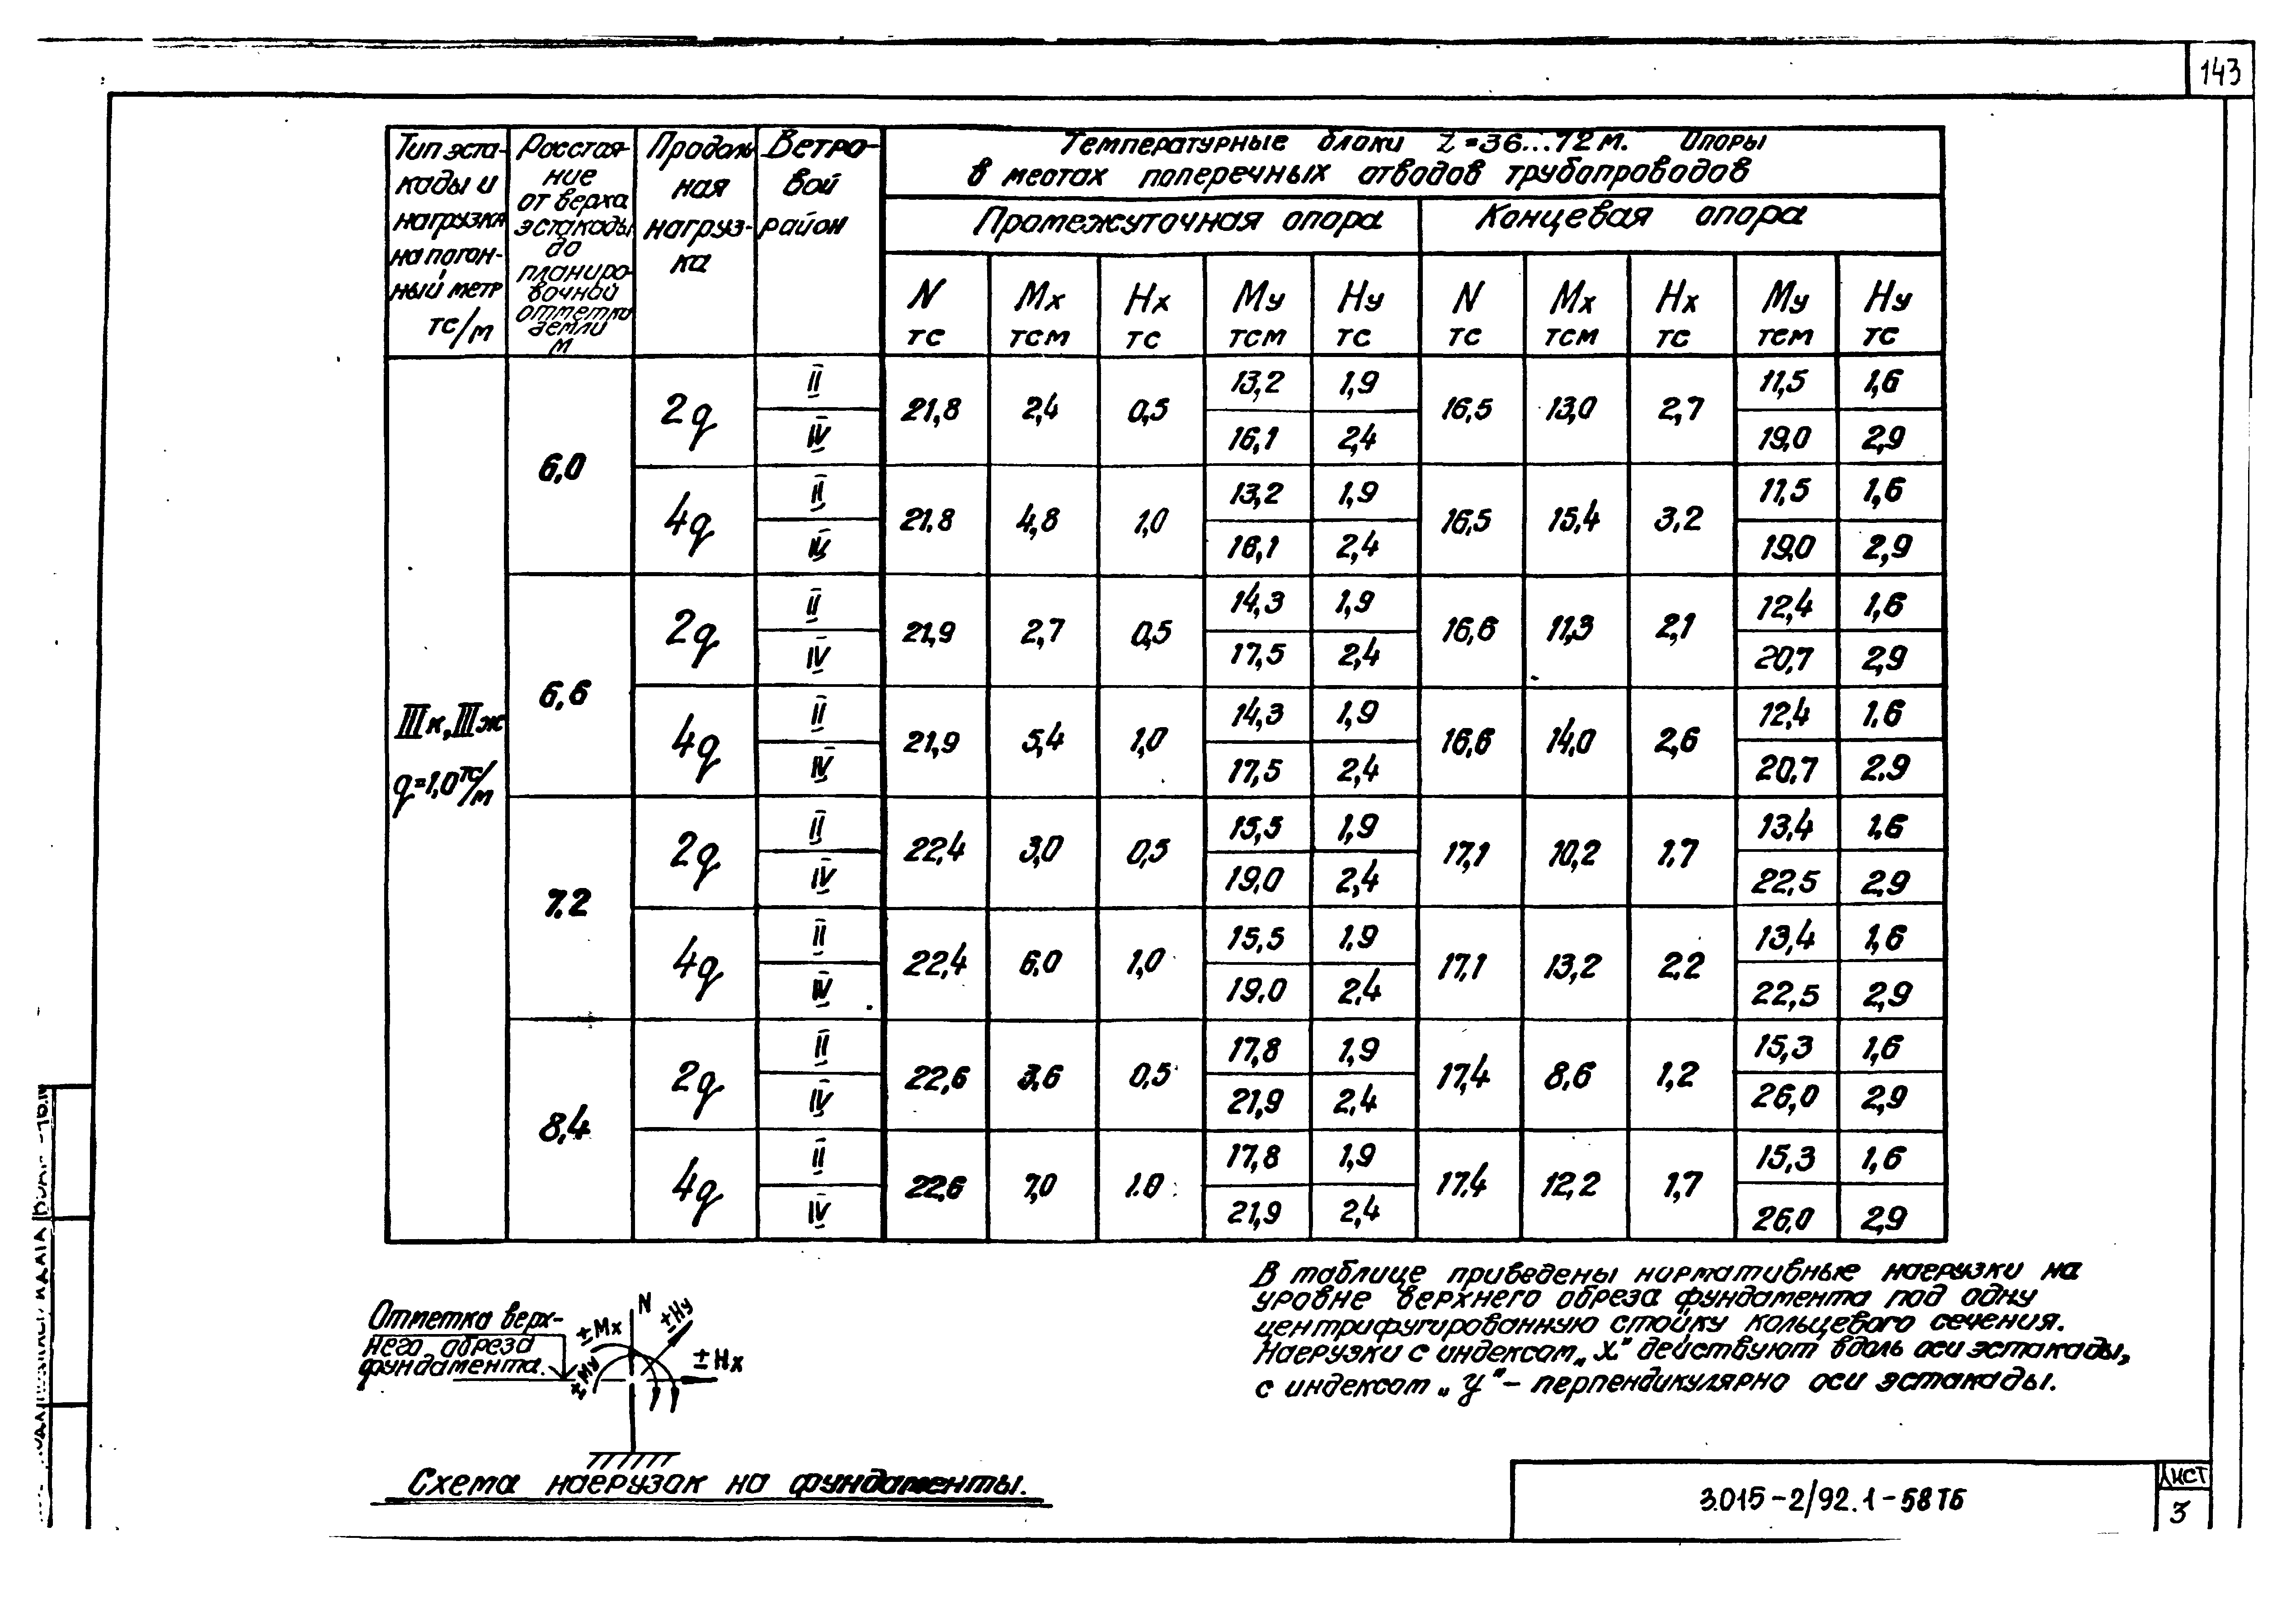 143
Тип эста-
кады и
нагрузка
на погон-
ный метр
тс/м
Расстоя-
ние
от верха
эстакады
до
планиро-
вочной
отметки
земли
м
Продоль
ная
нагруз-
ка
Ветро-
вой
район
Температурные блоки Z=36...72м. Опоры
в местах поперечных отводов трубопроводов
Промежуточная опора
Концевая опора
N тс
Mx тсм
Hx тс
My тсм
Hy тс
N тс
Mx тсм
Hx тс
My тсм
Hy тс
IIIк, IIIж
q=1,0 тс/м
6,0
2q II 21,8 2,4 0,5 13,2 1,9 16,5 13,0 2,7 11,5 1,6
IV 16,1 2,4 19,0 2,9
4q II 21,8 4,8 1,0 13,2 1,9 16,5 15,4 3,2 11,5 1,6
IV 16,1 2,4 19,0 2,9
6,6
2q II 21,9 2,7 0,5 14,3 1,9 16,6 11,3 2,1 12,4 1,6
IV 17,5 2,4 20,7 2,9
4q II 21,9 5,4 1,0 14,3 1,9 16,6 14,0 2,6 12,4 1.6
IV 17,5 2,4 20,7 2.9
7.2
2q II 22,4 3,0 0,5 15,5 1,9 17,1 10,2 1.7 13,4 1.6
IV 19,0 2,4 22,5 2,9
4q II 22,4 6.0 1,0 15,5 1.9 17.1 13,2 2.2 13,4 1,6
IV 19.0 2.4 22,5 2,9
8,4
2q II 22,6 3,6 0,5 17,8 1,9 17,4 8,6 1,2 15,3 1,6
IV 21,9 2.4 26,0 2,9
4q II 22,6 7,0 1.0 17,8 1,9 17.4 12,2 1,7 15,3 1,6
IV 21,9 2,4 26.0 2,9
В таблице приведены нормативные нагрузки на
уровне верхнего обреза фундамента под одну
центрифугированную стойку кольцевого сечения.
Нагрузки с индексом „X" действуют вдоль оси эстакады,
с индексом „У" – перпендикулярно оси эстакады.
Отметка верх-
него обреза
фундамента.
N
±Mx
±Hy
±My
±Hx
Схема нагрузок на фундаменты.
3.015-2/92.1-58ТБ
Лист
3